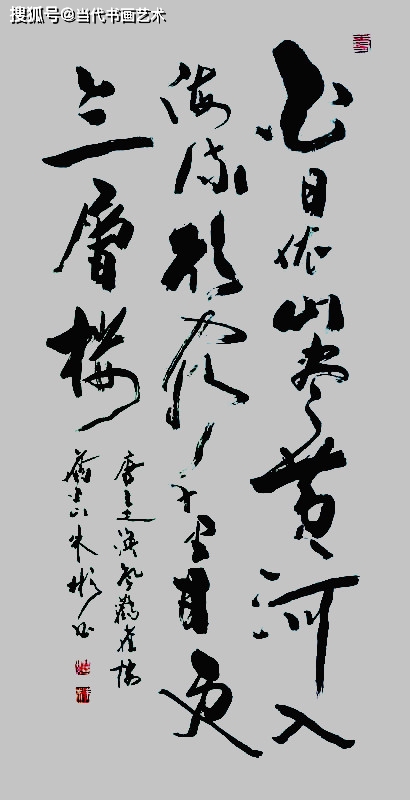 搜狐号@当代书画艺术
白日依山尽黄河入
海流欲穷千里目更
上一層楼
唐王之涣登鹳雀楼
朱彬书